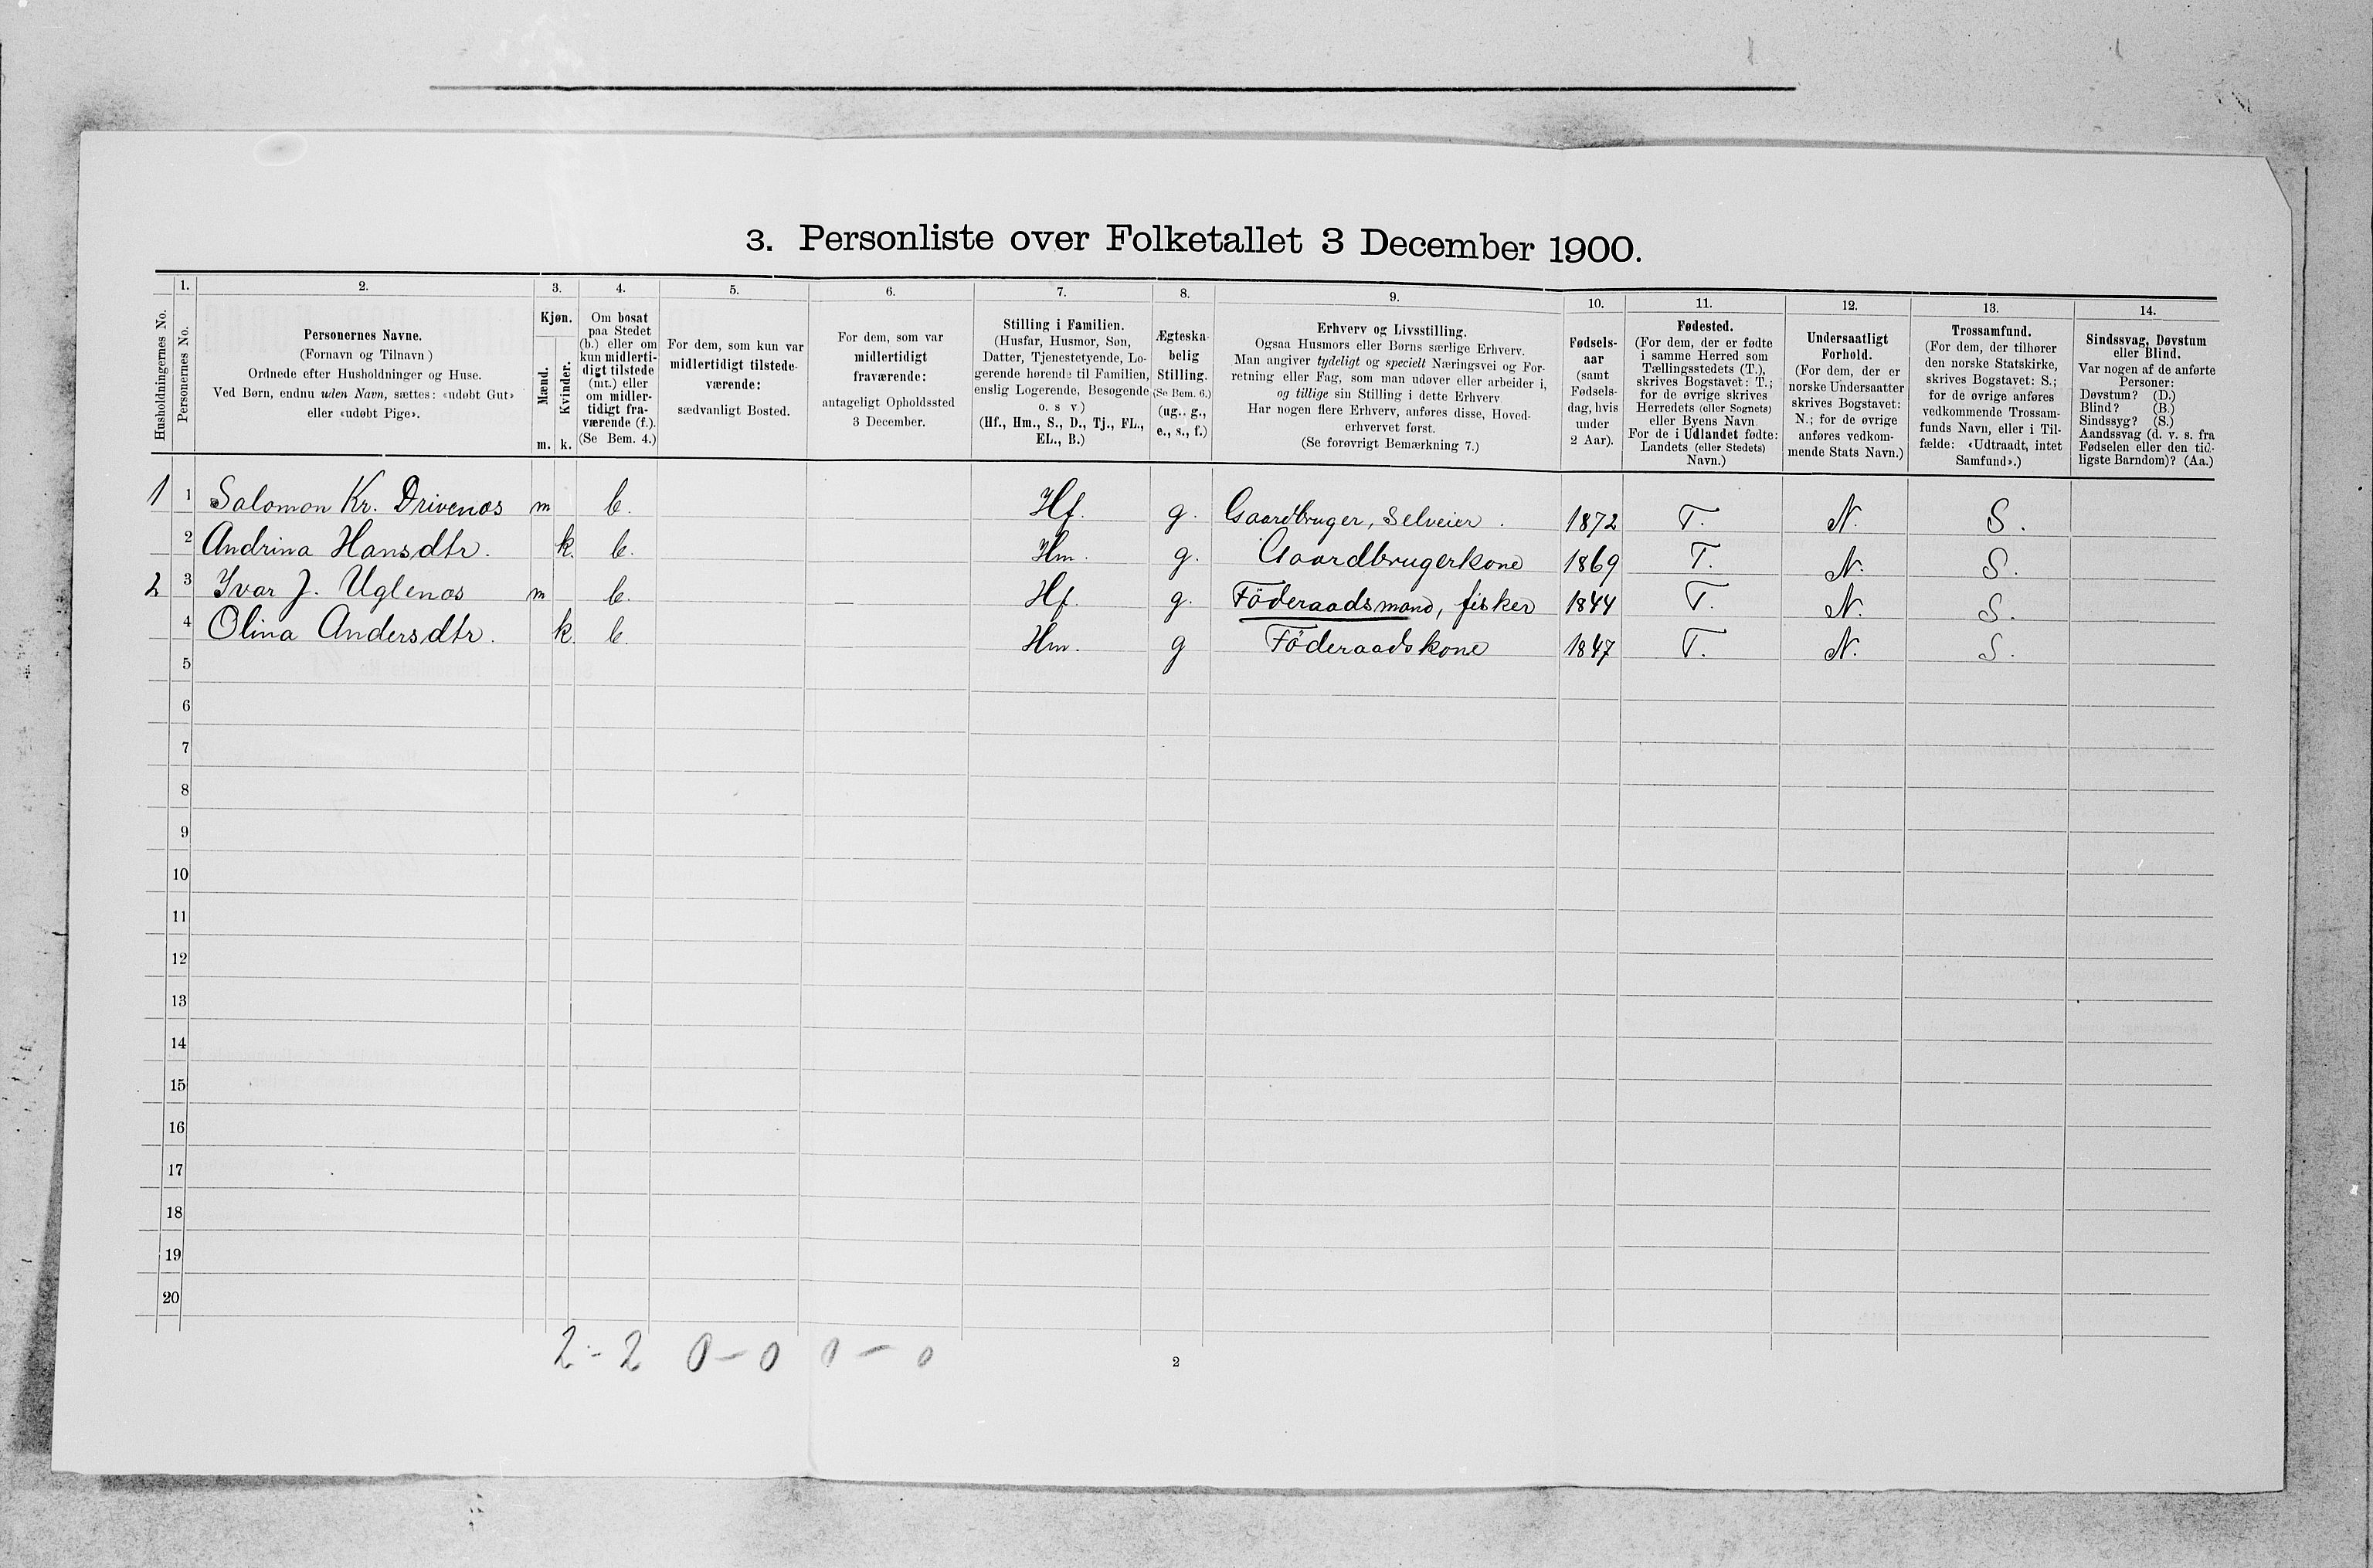 3. Personliste over Folketallet 3 December 1900.
Husholdningernes No.
1.
Personernes No.
2.
Personernes Navne.
(Fornavn og Tilnavn)
Ordnede efter Husholdninger og Huse.
Ved Børn, endnu uden Navn, sættes: «udøbt Gut»
eller «udøbt Pige».
3.
Kjøn.
Mænd.
Kvinder.
m. k.
4.
Om bosat
paa Stedet
(b.) eller om
kun midlerti-
digt tilstede
(mt.) eller
om midler-
tidigt fra-
værende (f.).
(Se Bem. 4.)
5.
For dem, som kun var
midlertidigt tilstede-
værende:
sædvanligt Bosted.
6.
For dem, som var
midlertidigt
fraværende:
antageligt Opholdssted
3 December.
7.
Stilling i Familien.
(Husfar, Husmor, Søn,
Datter, Tjenestetyende, Lo-
gerende hørende til Familien,
enslig Logerende, Besøgende
o. s v)
(Hf., Hm., S., D., Tj., FL.,
EL., B.)
8.
Ægteska-
belig
Stilling.
(Se Bem. 6.)
(ug., g.,
e., s., f.)
9.
Erhverv og Livsstilling.
Ogsaa Husmors eller Børns særlige Erhverv.
Man angiver tydeligt og specielt Næringsvei og For-
retning eller Fag, som man udøver eller arbeider i,
og tillige sin Stilling i dette Erhverv
Har nogen flere Erhverv, anføres disse, Hoved-
erhvervet først.
(Se forøvrigt Bemærkning 7.)
10.
Fødsels-
aar
(samt
Fødsels-
dag, hvis
under
2 Aar).
11.
Fødested.
(For dem, der er fødte
i samme Herred som
Tællingsstedets (T.),
skrives Bogstavet: T.;
for de øvrige skrives
Herredets (eller Sognets)
eller Byens Navn
For de i Udlandet fødte:
Landets (eller Stedets)
Navn.)
12.
Undersaatligt
Forhold.
(For dem, der er
norske Undersaatter
skrives Bogstavet:
N.; for de øvrige
anføres vedkom-
mende Stats Navn.)
13.
Trossamfund.
(For dem, der tilhører
den norske Statskirke,
skrives Bogstavet: S.;
for de øvrige anføres
vedkommende Trossam-
funds Navn, eller i Til-
fælde: «Udtraadt, intet
Samfund».)
14.
Sindssvag, Døvstum
eller Blind.
Var nogen af de anførte
Personer:
Døvstum? (D.)
Blind? (B.)
Sindssyg? (S.)
Aandssvag (d. v. s. fra
Fødselen eller den tid-
ligste Barndom)? (Aa.)
1 1 Salomon Kr. Drivenæs m b. Hf. g. Gaardbruger, Selveier. 1872 T. N. S.
2 Andrina Hansdtr. k. b. Hm. g. Gaardbrugerkone 1869 T. N. S.
2 3 Ivar J. Uglenæs m b. — Hf. g. Föderaadsmand, fisker 1844 T. N. S.
4 Olina Andersdtr. k. b. Hm. g Föderaadskone 1847 T. N. S.
5
6
7
8
9
10
11
12
13
14
15
16
17
18
19
20
2 - 2 0 - 0 0 - 0
2